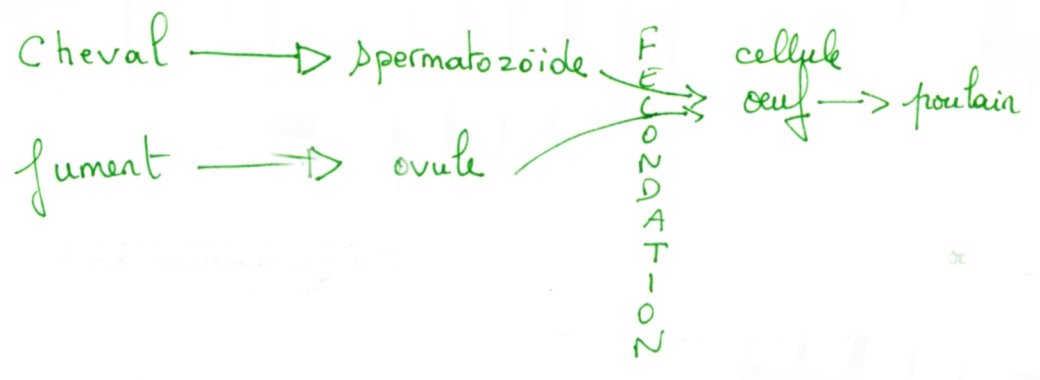 Cheval → spermatozoïde
Jument → ovule
FECONDATION
cellule
œuf → poulain